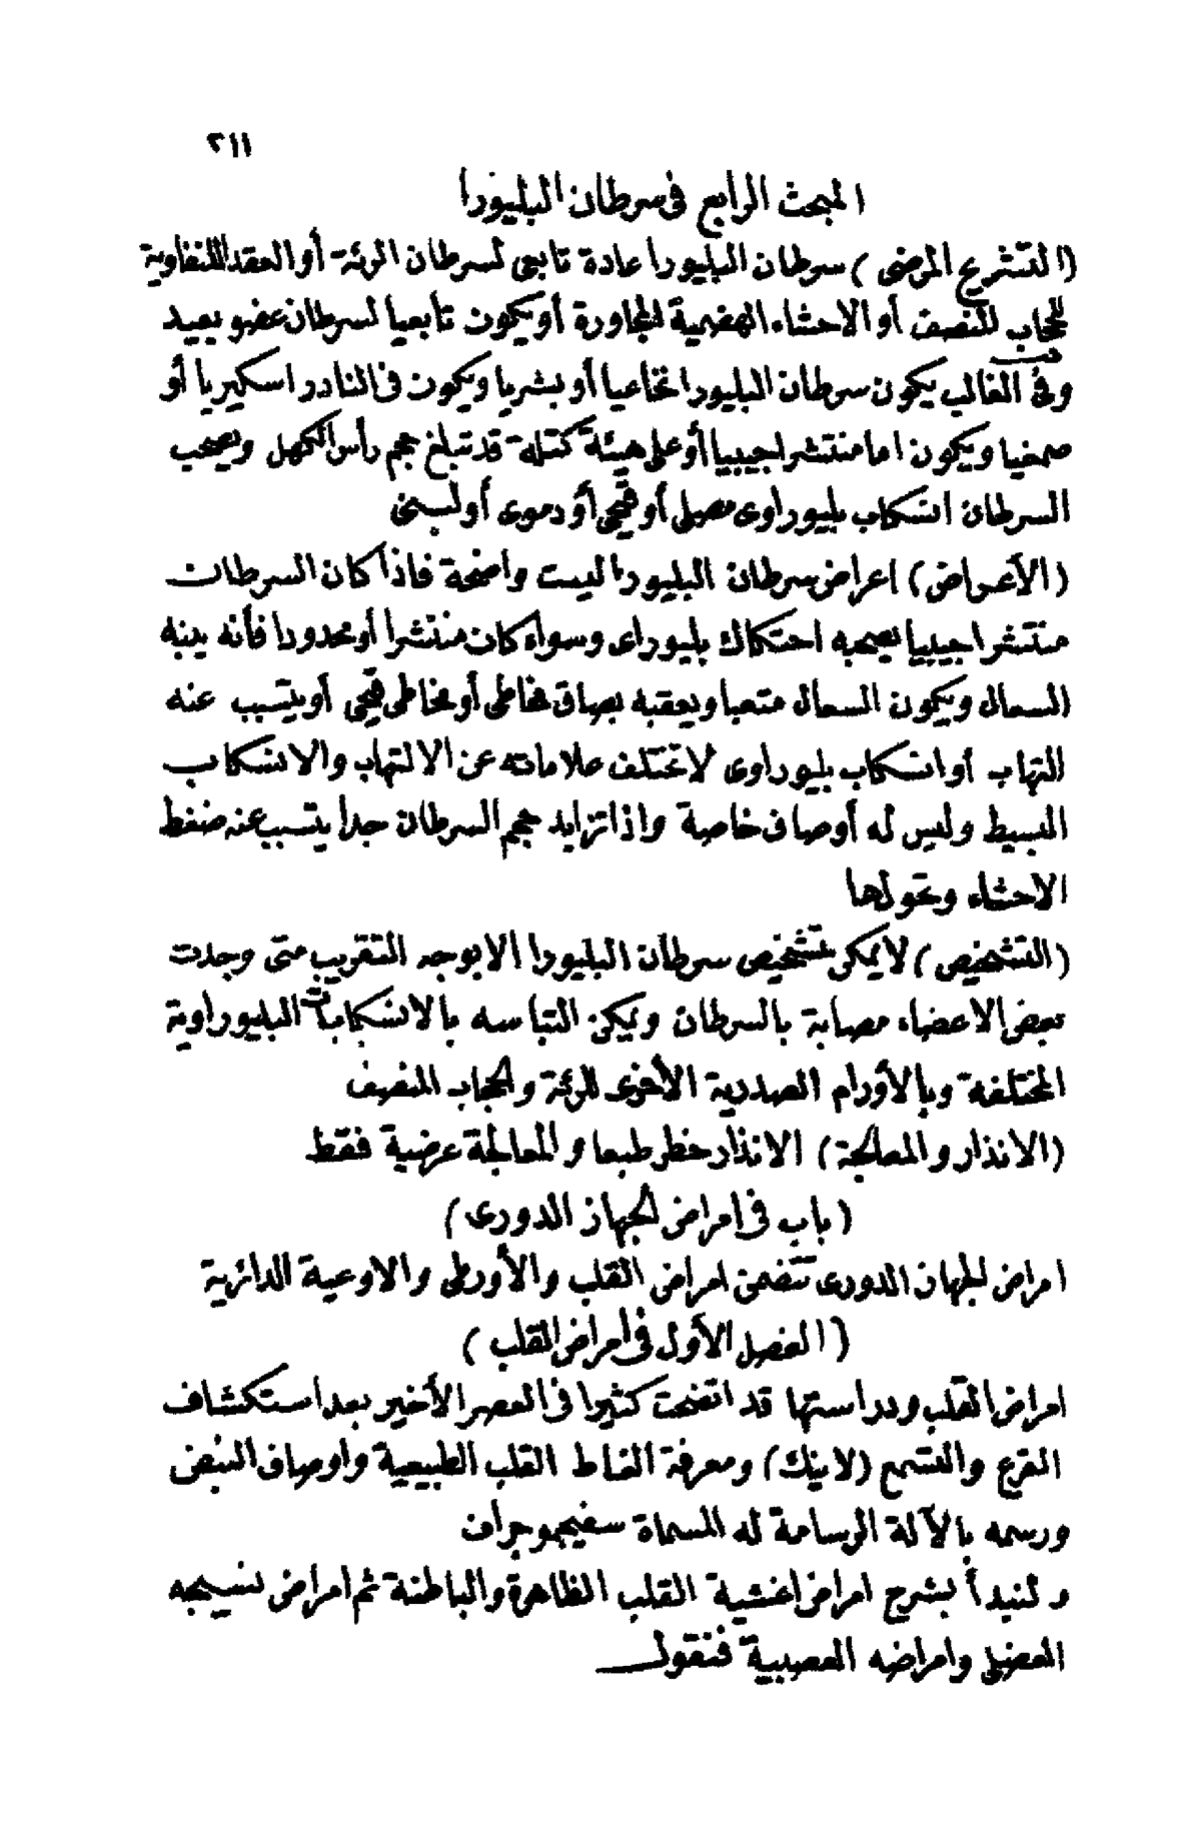 ٢١١
المبحث الرابع فى سرطان البليورا
(التشريح المرضى) سرطان البليورا عادة تابعى لسرطان الرئة أو العقد اللنفاوية
للحجاب المنصف أو الاحشاء الهضمية المجاورة أو يكون تابعيا لسرطان عضو بعيد
وفى الغالب يكون سرطان البليورا نخاعيا أو بشريا ويكون فى النادر اسكيريا أو
صمغيا ويكون اما منتشرا جيبيا أو على هيئة كتلة قد تبلغ حجم رأس الكهل ويصحب
السرطان انسكاب بليوراوى مصلى أو قيحى أو دموى أو لبنى
(الأعراض) اعراض سرطان البليورا ليست واضحة فاذا كان السرطان
منتشرا جيبيا يصحبه احتكاك بليوراى وسواء كان منتشرا أو محدودا فأنه ينبه
السعال ويكون السعال متعبا ويعقبه بصاق مخاطى أو مخاطى قيحى أو يتسبب عنه
التهاب أو انسكاب بليوراوى لا تختلف علاماته عن الالتهاب والانسكاب
البسيط وليس له أوصاف خاصة واذا تزايد حجم السرطان جدا يتسبب عنه ضغط
الاحشاء وتحولها
(التشخيص) لا يمكن تشخيص سرطان البليورا الا بوجه التقريب متى وجدت
بعض الاعضاء مصابة بالسرطان ويمكن التباسه بالانسكابات البليوراوية
المختلفة وبالأورام الصدرية الأخرى للرئة والحجاب المنصف
(الانذار والمعالجة) الانذار خطر طبعا والمعالجة عرضية فقط
(باب فى امراض الجهاز الدورى)
امراض الجهاز الدورى تتضمن امراض القلب والأورطى والاوعية الدائرية
(الفصل الأول فى امراض القلب)
امراض القلب ودراستها قد اتضحت كثيرا فى العصر الأخير بعد استكشاف
القرع والتسمع (لاينك) ومعرفة الغاط القلب الطبيعية واوصاف النبض
ورسمه بالآلة الرسامة له المسماة سفيجموجراف
ولنبدأ بشرح امراض اغشية القلب الظاهرة والباطنة ثم امراض نسيجه
العضلى وامراضه العصبية فنقول